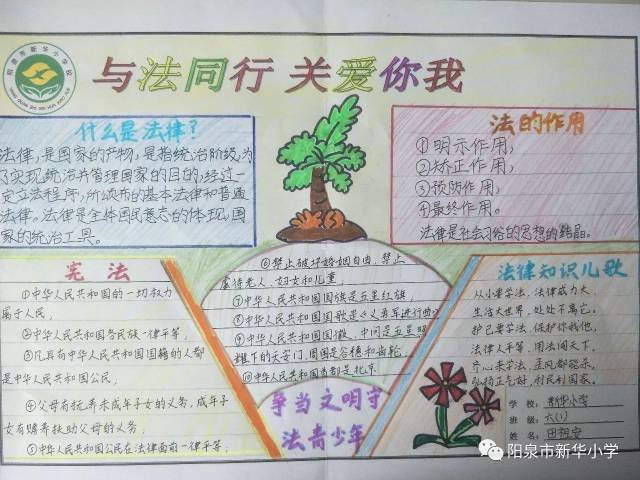 阳泉市新华小学校
与法同行 关爱你我
什么是法律?
法律,是国家的产物,是指统治阶级,为
了实现统治并管理国家的目的,经过一
定立法程序,所颁布的基本法律和普通
法律。法律是全体国民意志的体现,国
家的统治工具。
法的作用
①明示作用,
②矫正作用,
③预防作用,
④最终作用。
法律是社会习俗的思想的结晶。
宪法
①中华人民共和国的一切权力
属于人民,
②中华人民共和国各民族一律平等,
③凡具有中华人民共和国国籍的人都
是中华人民共和国公民,
④父母有抚养未成年子女的义务,成年子
女有赡养扶助父母的义务,
⑤中华人民共和国公民在法律面前一律平等,
⑥禁止破坏婚姻自由,禁止
虐待老人,妇女和儿童,
⑦中华人民共和国国旗是五星红旗,
⑧中华人民共和国国歌是《义勇军进行曲》
⑨中华人民共和国国徽,中间是五星照
耀下的天安门,周围是谷穗和齿轮,
⑩中华人民共和国首都是北京
争当文明守
法青少年
法律知识儿歌
从小要学法,法律威力大,
生活大世界,处处不离它。
护己要学法,保护你我他,
法律人平等,用法闯天下。
齐心来学法,歪风都能杀,
弘扬正气歌,利民利国家。
学校:新华小学
班级:六(1)
姓名:田
阳泉市新华小学